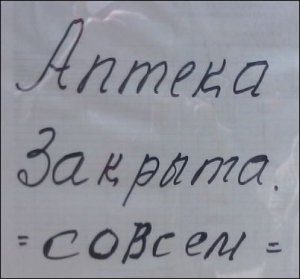 Аптека
Закрыта.
= совсем =